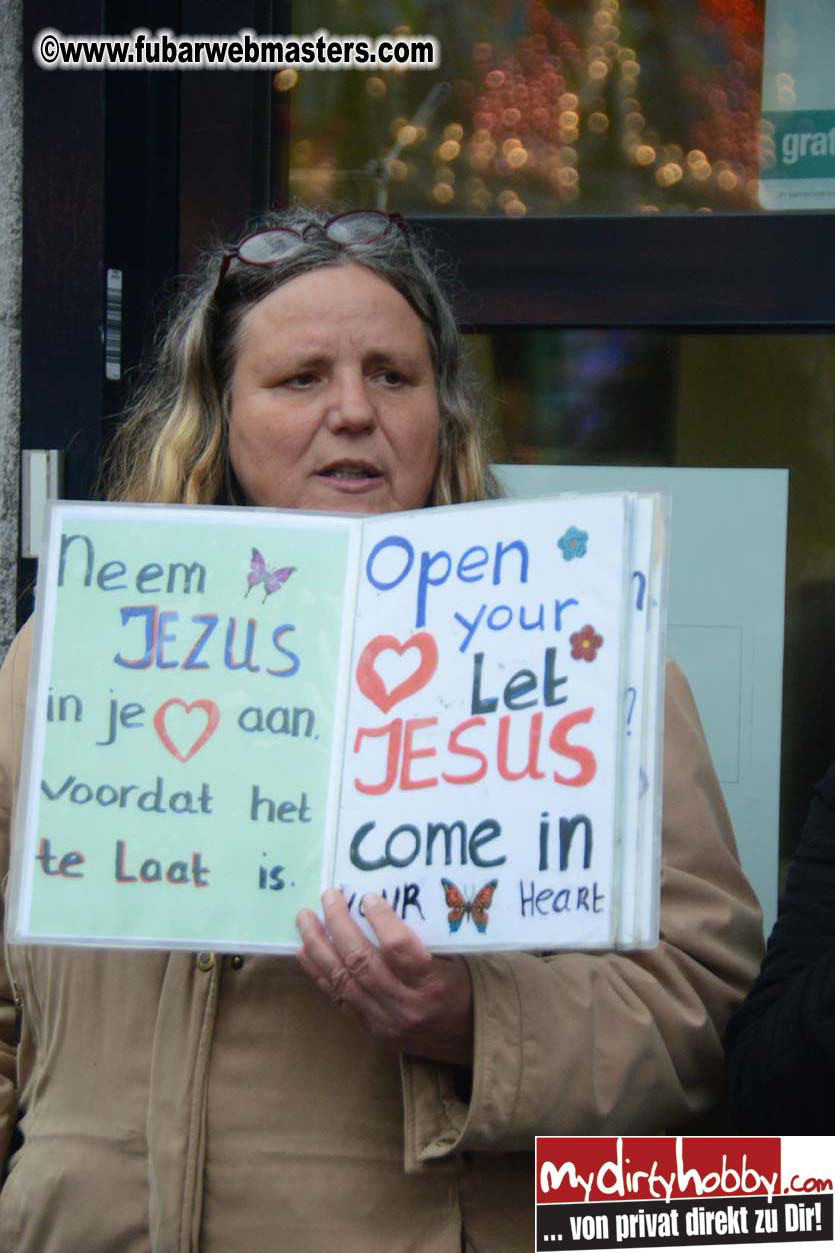 ©www.fubarwebmasters.com
grat
Neem
JEZUS
in je aan.
voordat het
te Laat is.
Open
your
Let
JESUS
come in
YOUR Heart
n
?
mydirtyhobby.com
... von privat direkt zu Dir!